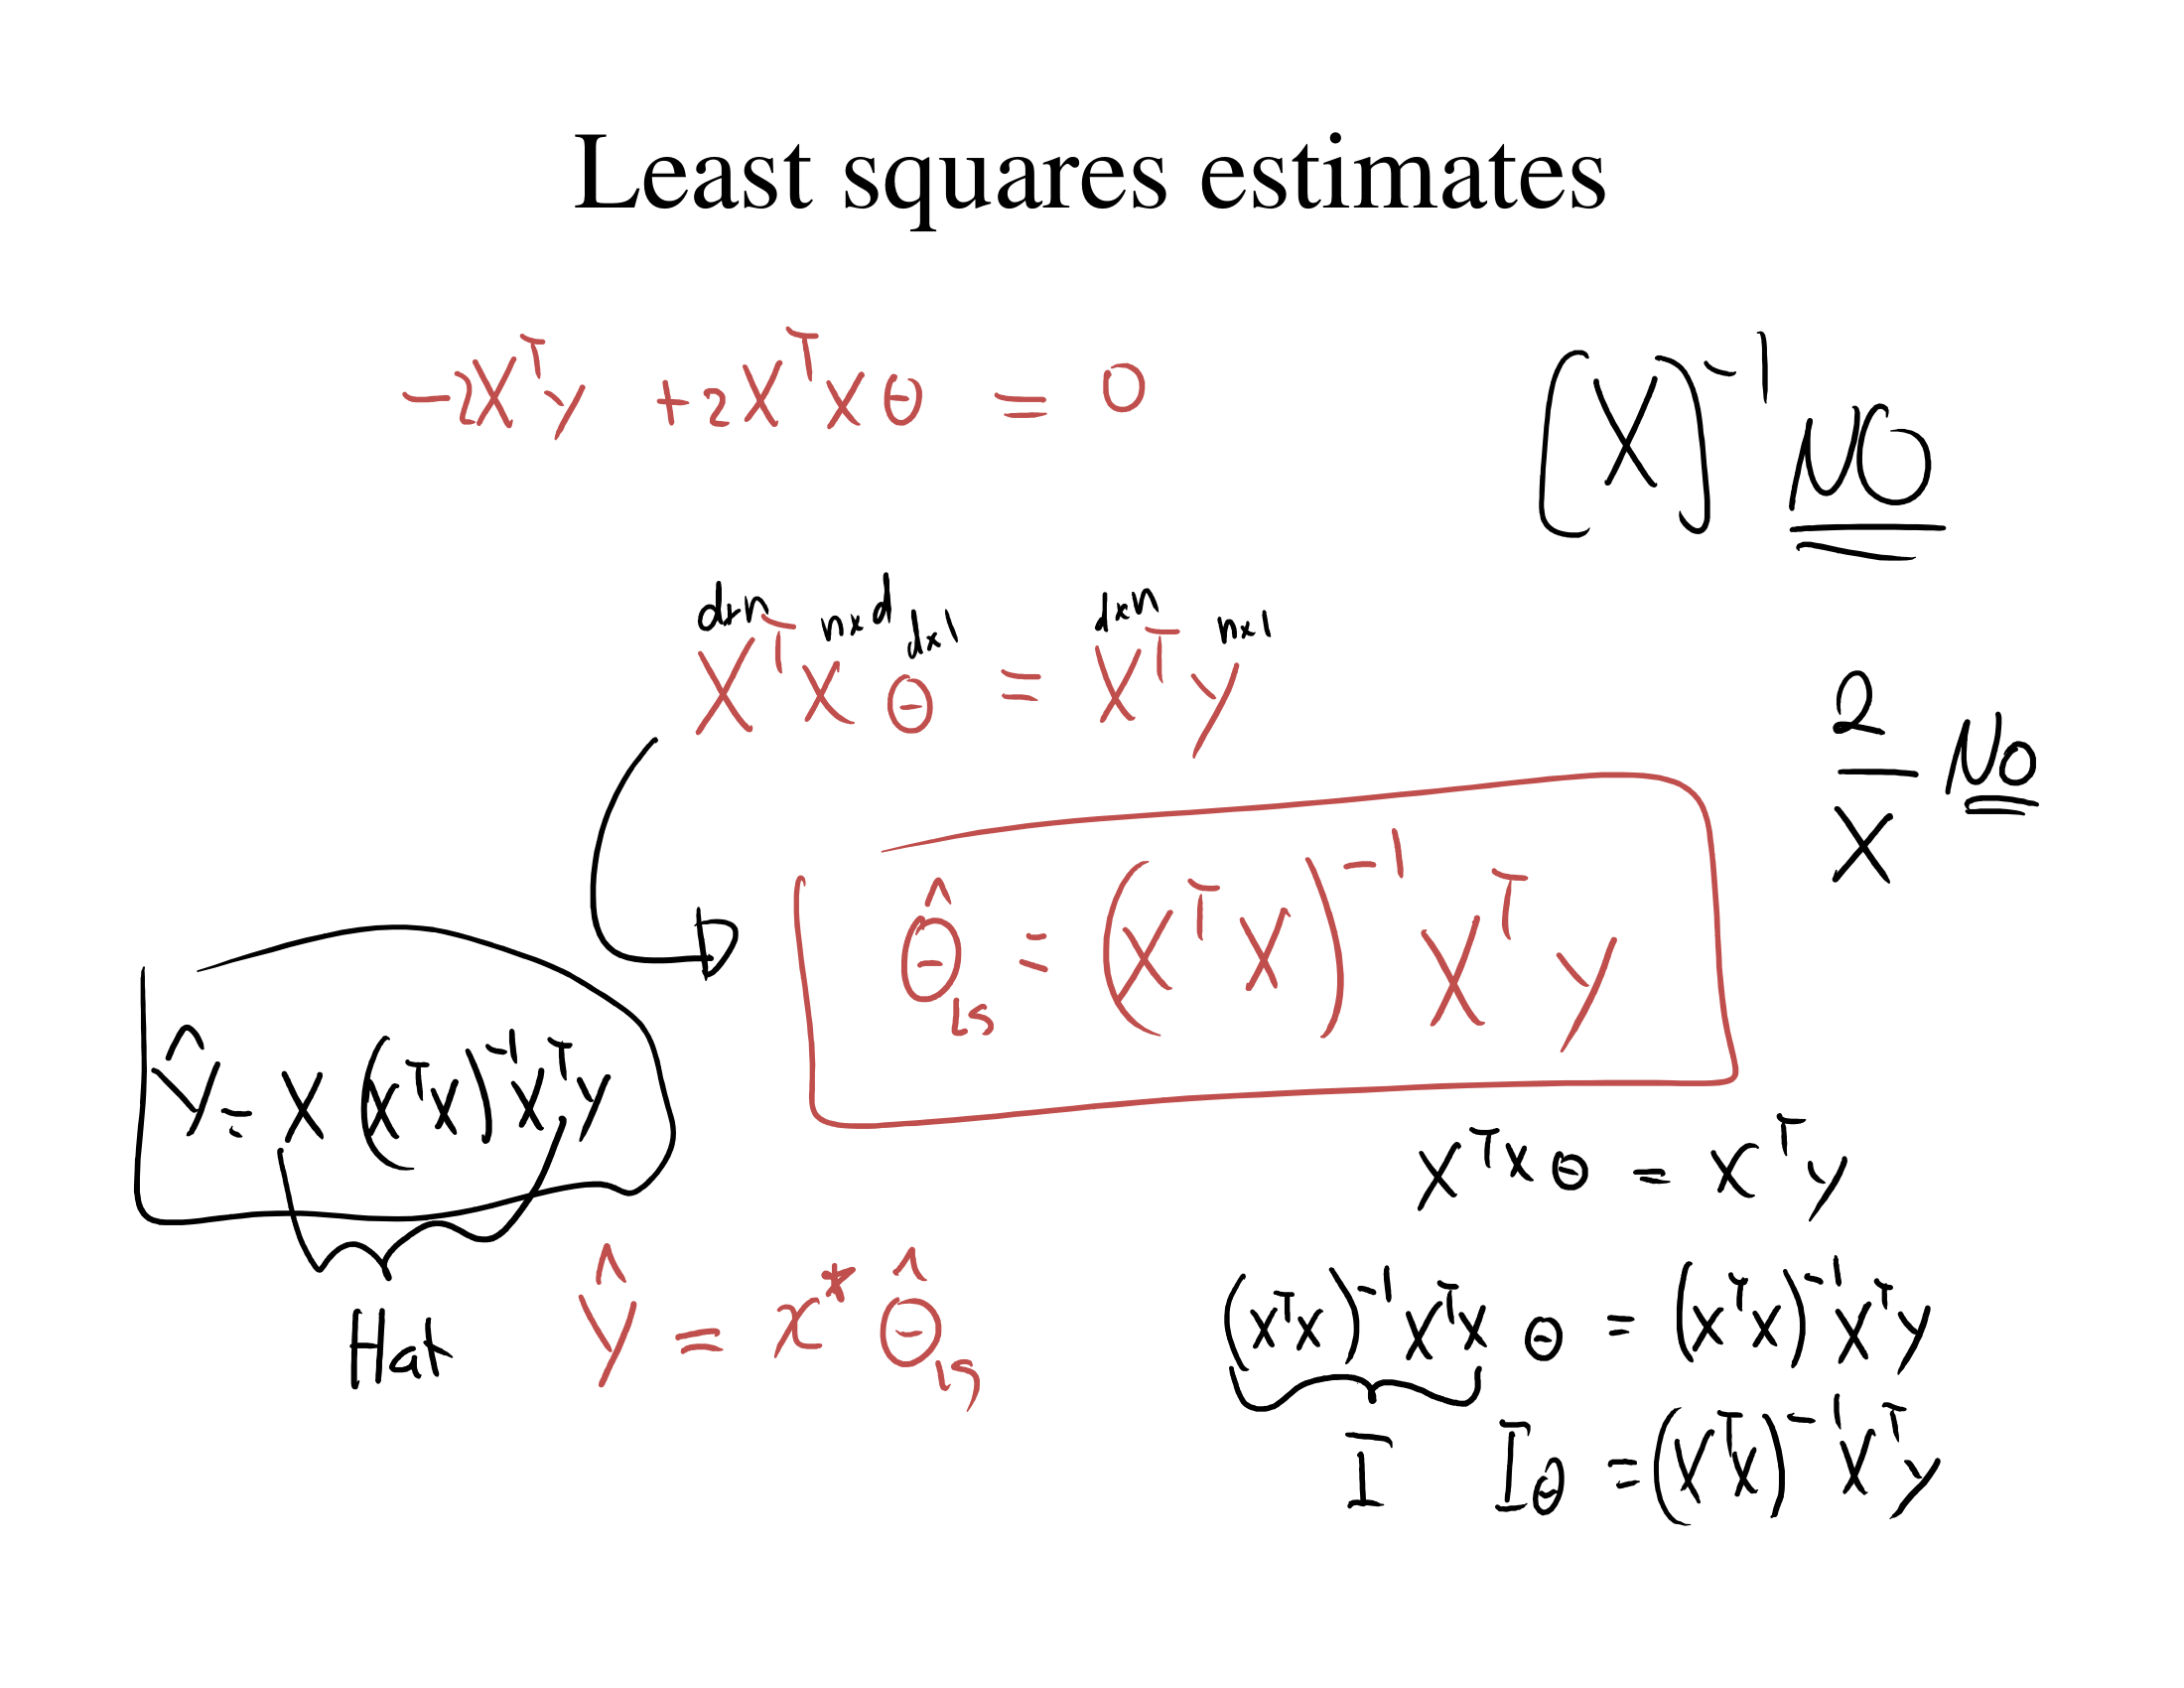 Least squares estimates
-2Xᵀy + 2XᵀXθ = 0
(X)⁻¹ NO
d×n n×d d×1 d×n n×1
XᵀXθ = Xᵀy
2/X No
θ̂_LS = (XᵀX)⁻¹Xᵀy
Ŷ = X(XᵀX)⁻¹Xᵀy
Hat
XᵀXθ = Xᵀy
ŷ = x*θ̂_LS
(XᵀX)⁻¹XᵀX θ = (XᵀX)⁻¹Xᵀy
I Iθ = (XᵀX)⁻¹Xᵀy